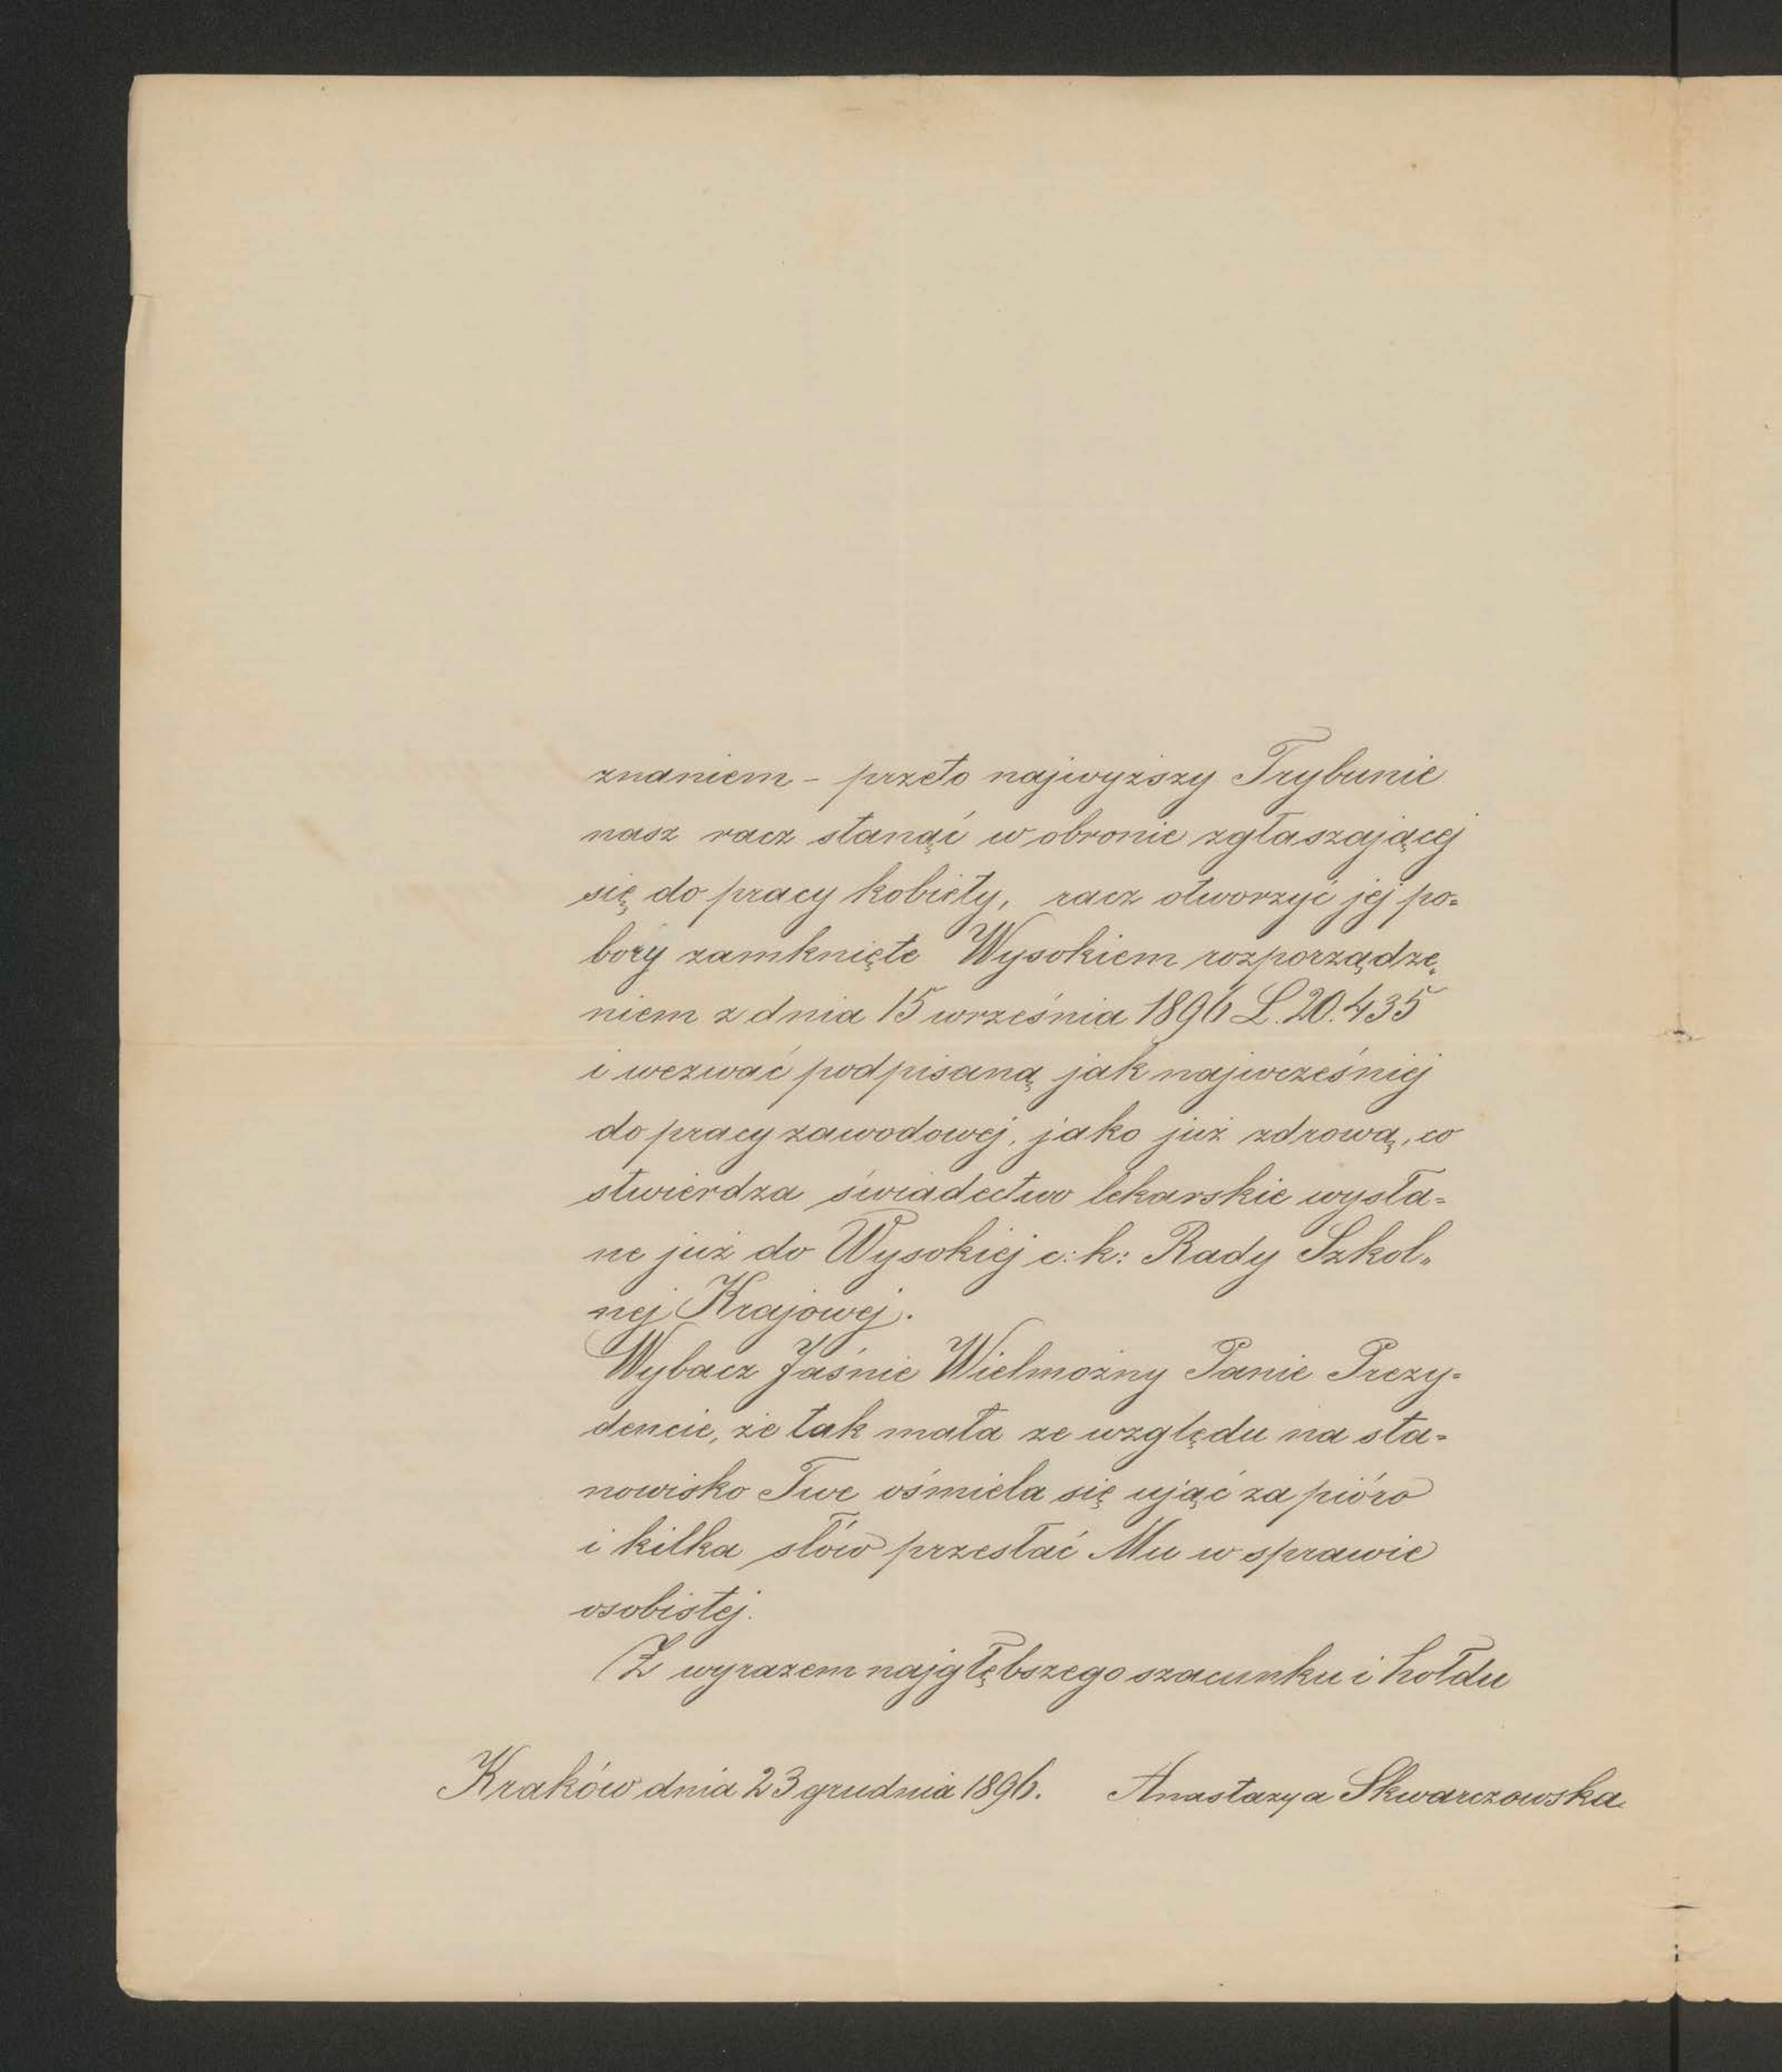 znaniem - przeto najwyższy Trybunie
nasz racz stanąć w obronie zgłaszającej
się do pracy kobiety, racz otworzyć jej po=
bory zamknięte Wysokiem rozporządze„
niem z dnia 15 września 1896 L. 20.435
i wezwać podpisaną jak najwcześniej
do pracy zawodowej, jako już zdrową, co
stwierdza świadectwo lekarskie wysła=
ne już do Wysokiej c: k: Rady Szkol„
nej Krajowej.
Wybacz Jaśnie Wielmożny Panie Prezy=
dencie, że tak mała ze względu na sta=
nowisko Twe ośmiela się ująć za pióro
i kilka słów przesłać Mu w sprawie
osobistej.
Z wyrazem najgłębszego szacunku i hołdu
Kraków dnia 23 grudnia 1896. Anastazya Skwarczowska